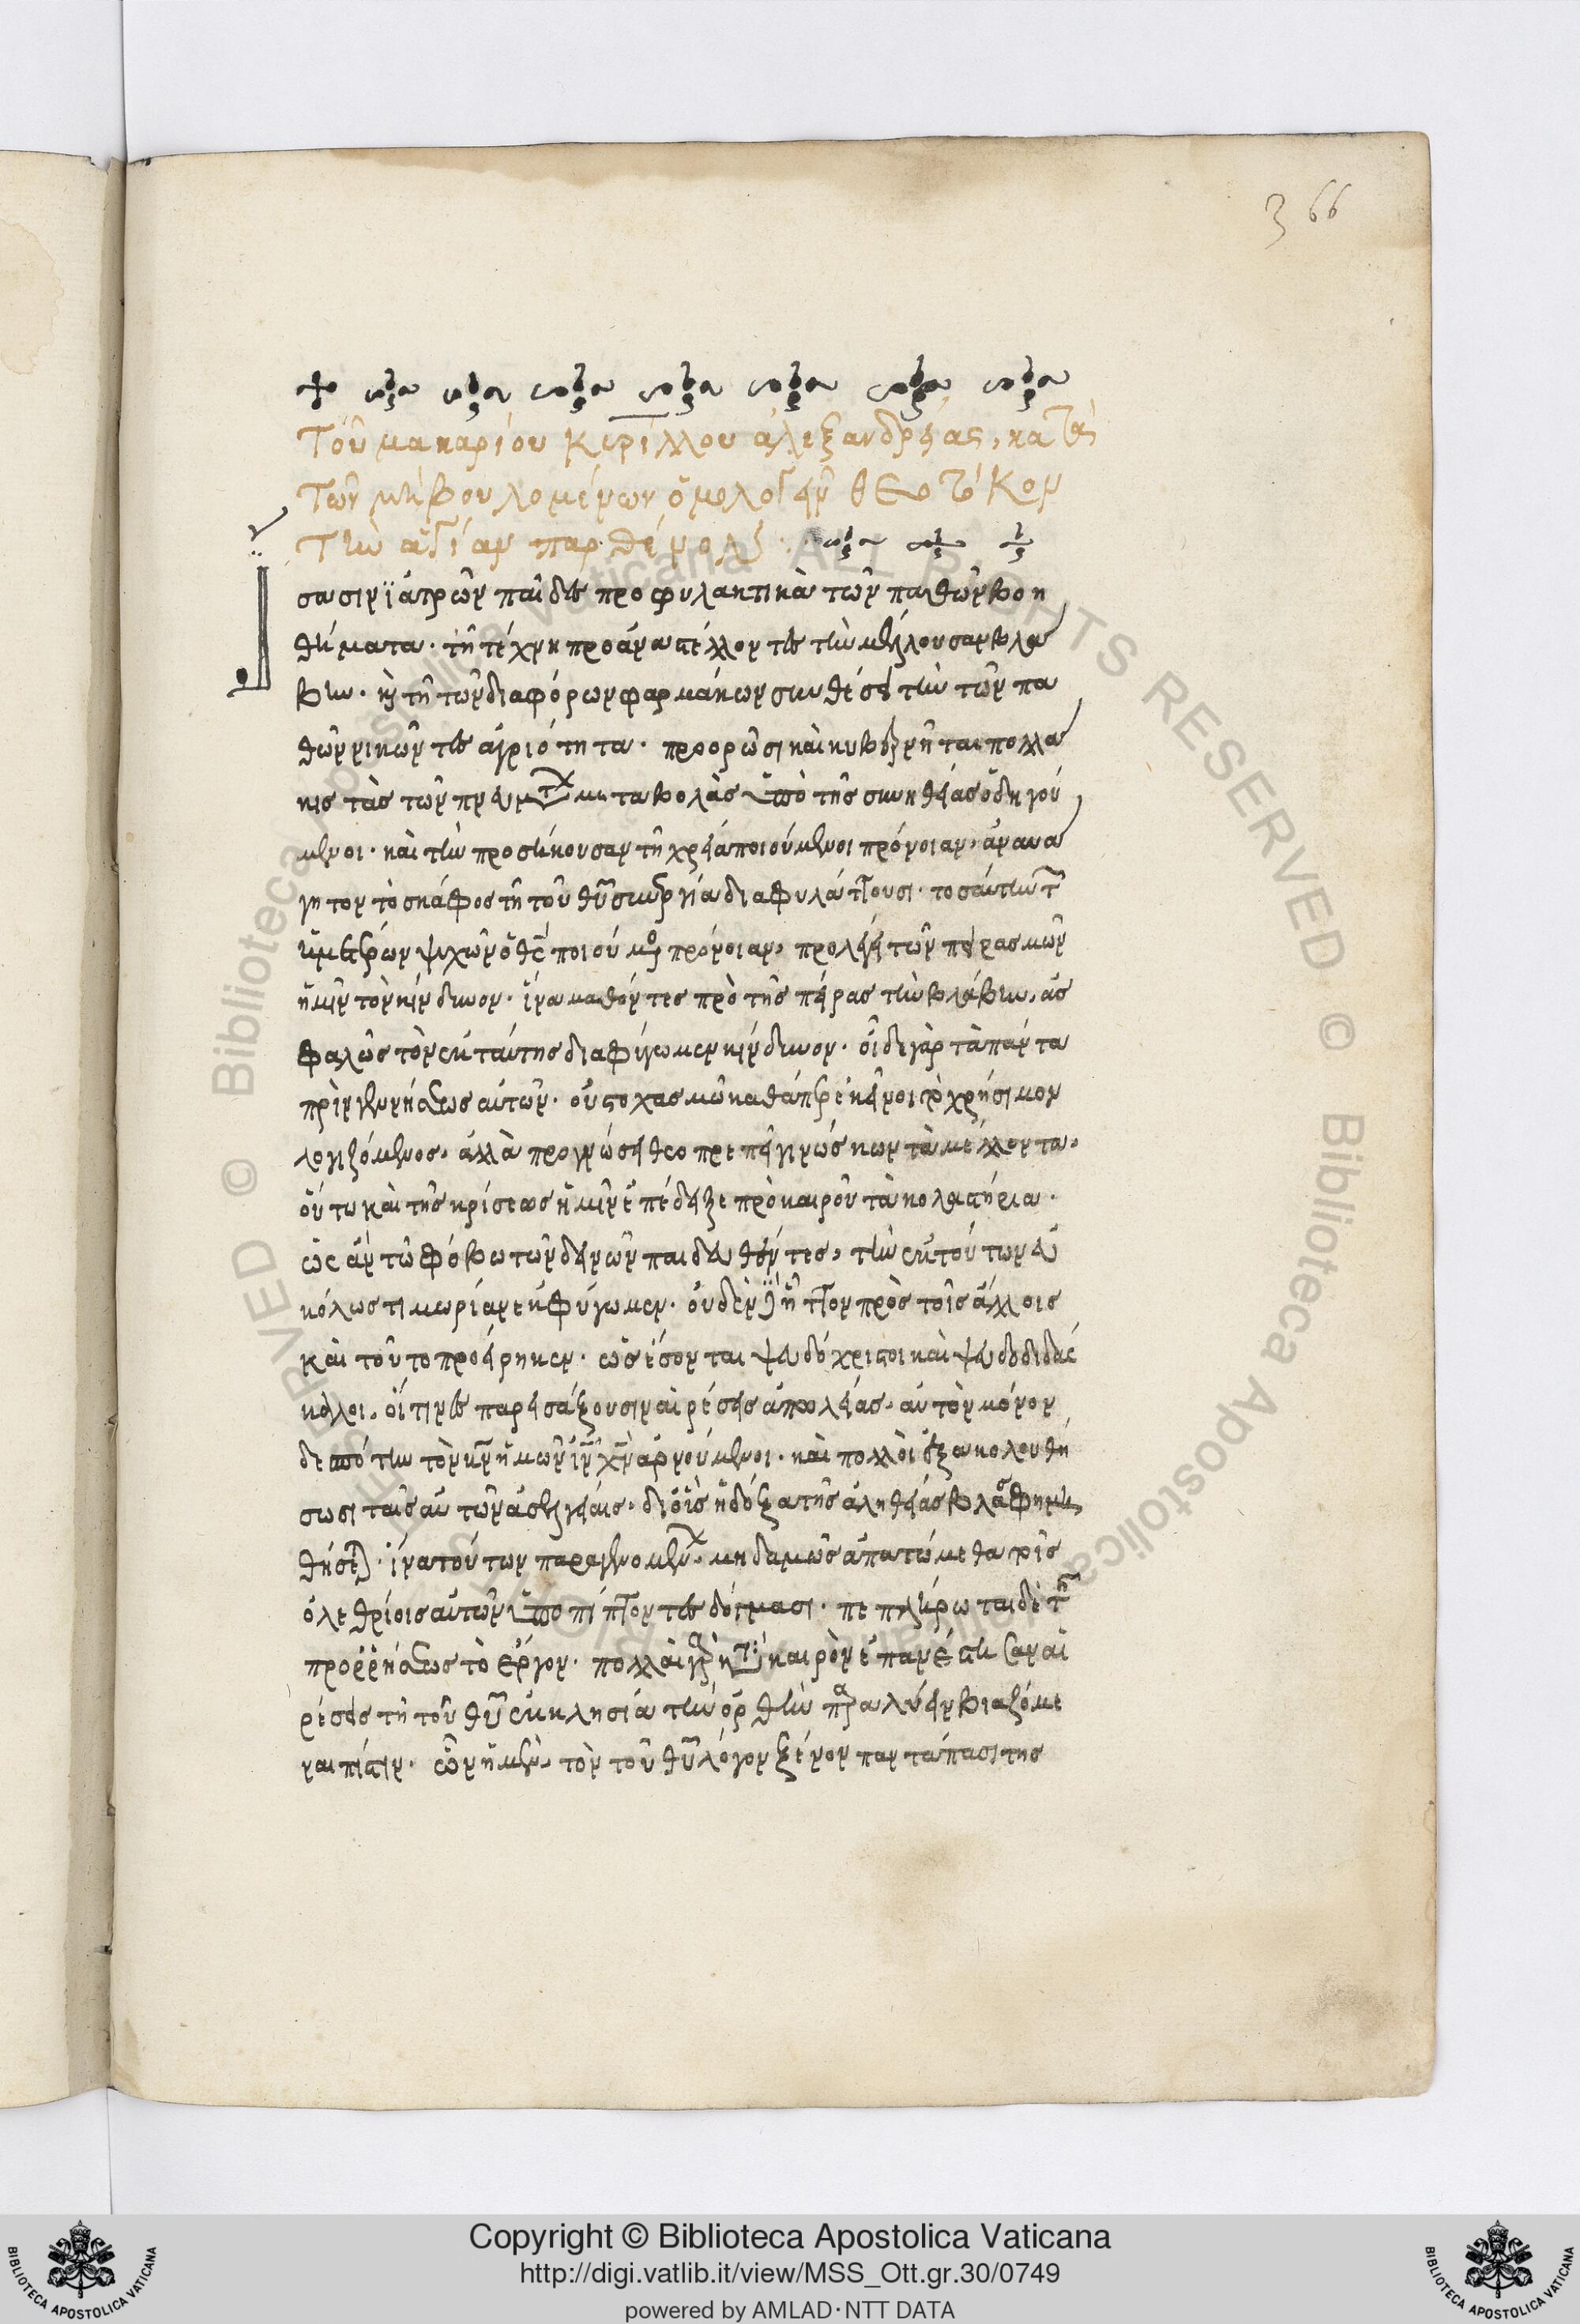 366
Τοῦ μακαρίου Κυρίλλου ἀλεξανδρείας, κατὰ
τῶν μὴ βουλομένων ὁμολογεῖν θεοτόκον
τὴν ἁγίαν παρθένον
Ἴσασιν ἰατρῶν παῖδες προφυλακτικὰ τῶν παθῶν βοη
θήματα. τῇ τέχνῃ προαναστέλλοντες τὴν μέλλουσαν βλά
βην. καὶ τῇ τῶν διαφόρων φαρμάκων συνθέσει τὴν τῶν πα
θῶν νικῶντες ἀγριότητα. προορῶσι καὶ κυβερνῆται πολλά
κις τὰς τῶν πνευμάτων μεταβολὰς ὑπὸ τῆς συνηθείας ὁδηγού
μενοι. καὶ τὴν προσήκουσαν τῇ χρείᾳ ποιούμενοι πρόνοιαν, ἀναυά
γητον τὸ σκάφος τῇ τοῦ θυ συνεργίᾳ διαφυλάττουσι. τοσαύτην τῶν
ἡμετέρων ψυχῶν ὁ θς ποιούμενος πρόνοιαν, προλέγει τῶν πειρασμῶν
ἡμῖν τὸν κίνδυνον. ἵνα μαθόντες πρὸ τῆς πείρας τὴν βλάβην, ἀσ
φαλῶς τὸν ἐκ ταύτης διαφύγωμεν κίνδυνον. οἶδε γὰρ τὰ πάντα
πρὶν γενέσεως αὐτῶν. οὐ στοχασμῷ καθάπερ ἐκεῖνοι τὸ χρήσιμον
λογιζόμενος, ἀλλὰ προγνώσει θεοπρεπεῖ γινώσκων τὰ μέλλοντα.
οὕτω καὶ τῆς κρίσεως ἡμῖν ἐπέδειξε πρὸ καιροῦ τὰ κολαστήρια.
ὡς ἂν τῷ φόβῳ τῶν δεινῶν παιδευθέντες, τὴν ἐκ τούτων εὐ
κόλως τιμωρίαν ἐκφύγωμεν. οὐδὲν δὲ ἧττον πρὸς τοῖς ἄλλοις
καὶ τοῦτο προείρηκεν. ὡς ἔσονται ψευδόχριστοι καὶ ψευδοδιδάσ
καλοι, οἵτινες παρεισάξουσιν αἱρέσεις ἀπωλείας, αὐτὸν μόνον
δεσπότην τὸν κν ἡμῶν ιν χν ἀρνούμενοι. καὶ πολλοὶ ἐξακολουθή
σωσι ταῖς αὐτῶν ἀσελγείαις. δι' οἷς ἡ δόξα τῆς ἀληθείας βλασφημη
θήσεται. ἵνα τούτων παραγενομένων, μηδαμῶς ἀπατώμεθα τοῖς
ὀλεθρίοις αὐτῶν ὑποπίπτοντες δόγμασι. πεπλήρωται δὲ τῆς
προρρήσεως τὸ ἔργον. πολλαὶ γὰρ κατὰ καιρὸν ἐπανέστησαν αἱ
ρέσεις τῇ τοῦ θυ ἐκκλησίᾳ τὴν ὀρθὴν παραλύειν βιαζόμε
ναι πίστιν. ὧν ἡ μὲν, τὸν τοῦ θυ λόγον ξένον παντάπασι τῆς
Copyright © Biblioteca Apostolica Vaticana
http://digi.vatlib.it/view/MSS_Ott.gr.30/0749
powered by AMLAD·NTT DATA